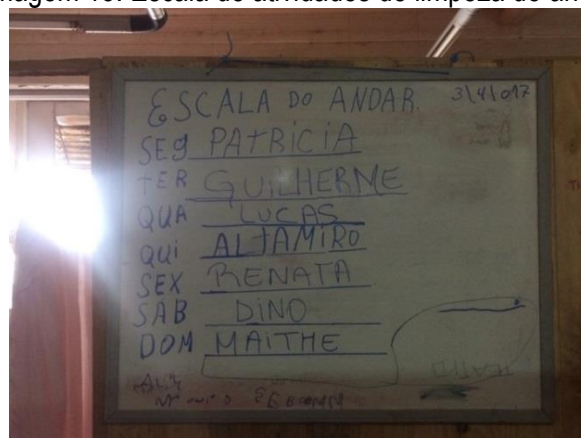 ESCALA DO ANDAR 3\4\017
SEG PATRICIA
TER GUILHERME
QUA LUCAS
QUI ALTAMIRO
SEX RENATA
SAB DINO
DOM MAITHE